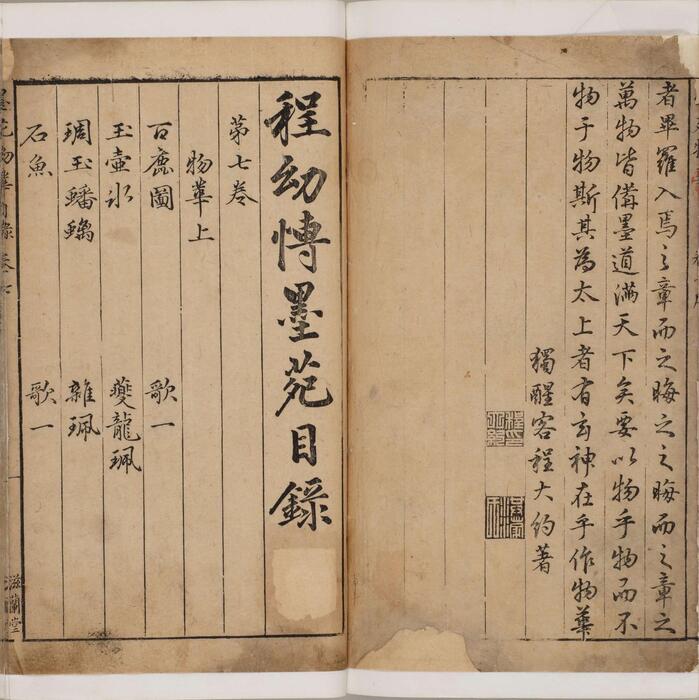 者畢羅入焉之章而之晦之之晦而之章之
萬物皆備墨道滿天下矣要以物乎物而不
物于物斯其為太上者有玄神在乎作物華
獨醒客程大約著
程幼博墨苑目錄
第七卷
物華上
百鹿圖
歌一
玉壷冰
夔龍珮
琱玉蟠螭
雜珮
石魚
歌一
墨苑物華目錄 卷七
一
滋蘭堂